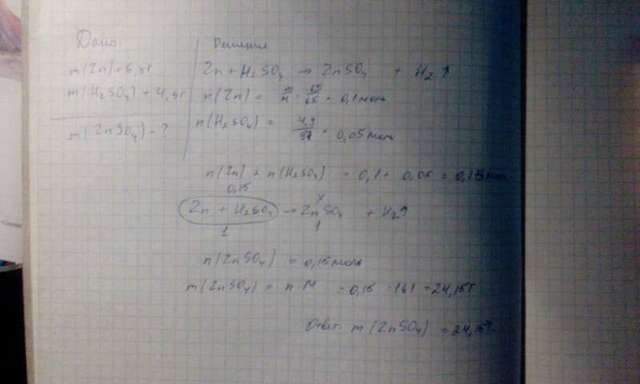 Дано
m(Zn) = 6,5г
m(H₂SO₄) = 4,9г
m(ZnSO₄) - ?
Решение
Zn + H₂SO₄ → ZnSO₄ + H₂↑
n(Zn) = m/M = 6,5/65 = 0,1 моль
n(H₂SO₄) = 4,9/98 = 0,05 моль
n(Zn) + n(H₂SO₄) = 0,1 + 0,05 = 0,15 моль
0,15 x
Zn + H₂SO₄ → ZnSO₄ + H₂↑
1 1
n(ZnSO₄) = 0,15 моль
m(ZnSO₄) = n · M = 0,15 · 161 = 24,15г
Ответ: m(ZnSO₄) = 24,15г